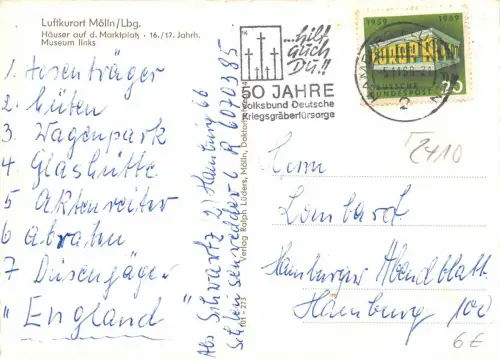 Luftkurort Mölln/Lbg.
Häuser auf d. Marktplatz · 16./17. Jahrh.
Museum links
1 Hosenträger
2 hüten
3 Wagenpark
4 Glashütte
5 Aktenreiter
6 abraten
7 Düsenjäger
" England
Abs Schwartz 2 Hamburg 66
R 6070385
Verlag Ralph Lüders, Mölln,
...hilf
auch
Du!!
50 JAHRE
Volksbund Deutsche
Kriegsgräberfürsorge
1959 1969
EUROPA
DEUTSCHE
BUNDESPOST
20
2
2410
Herrn
Lombard
Hamburger Abendblatt
Hamburg 100
6€